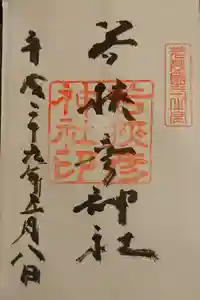 若狭國一之宮
若狭彦神社
若狭彦
神社印
平成二十九年五月八日